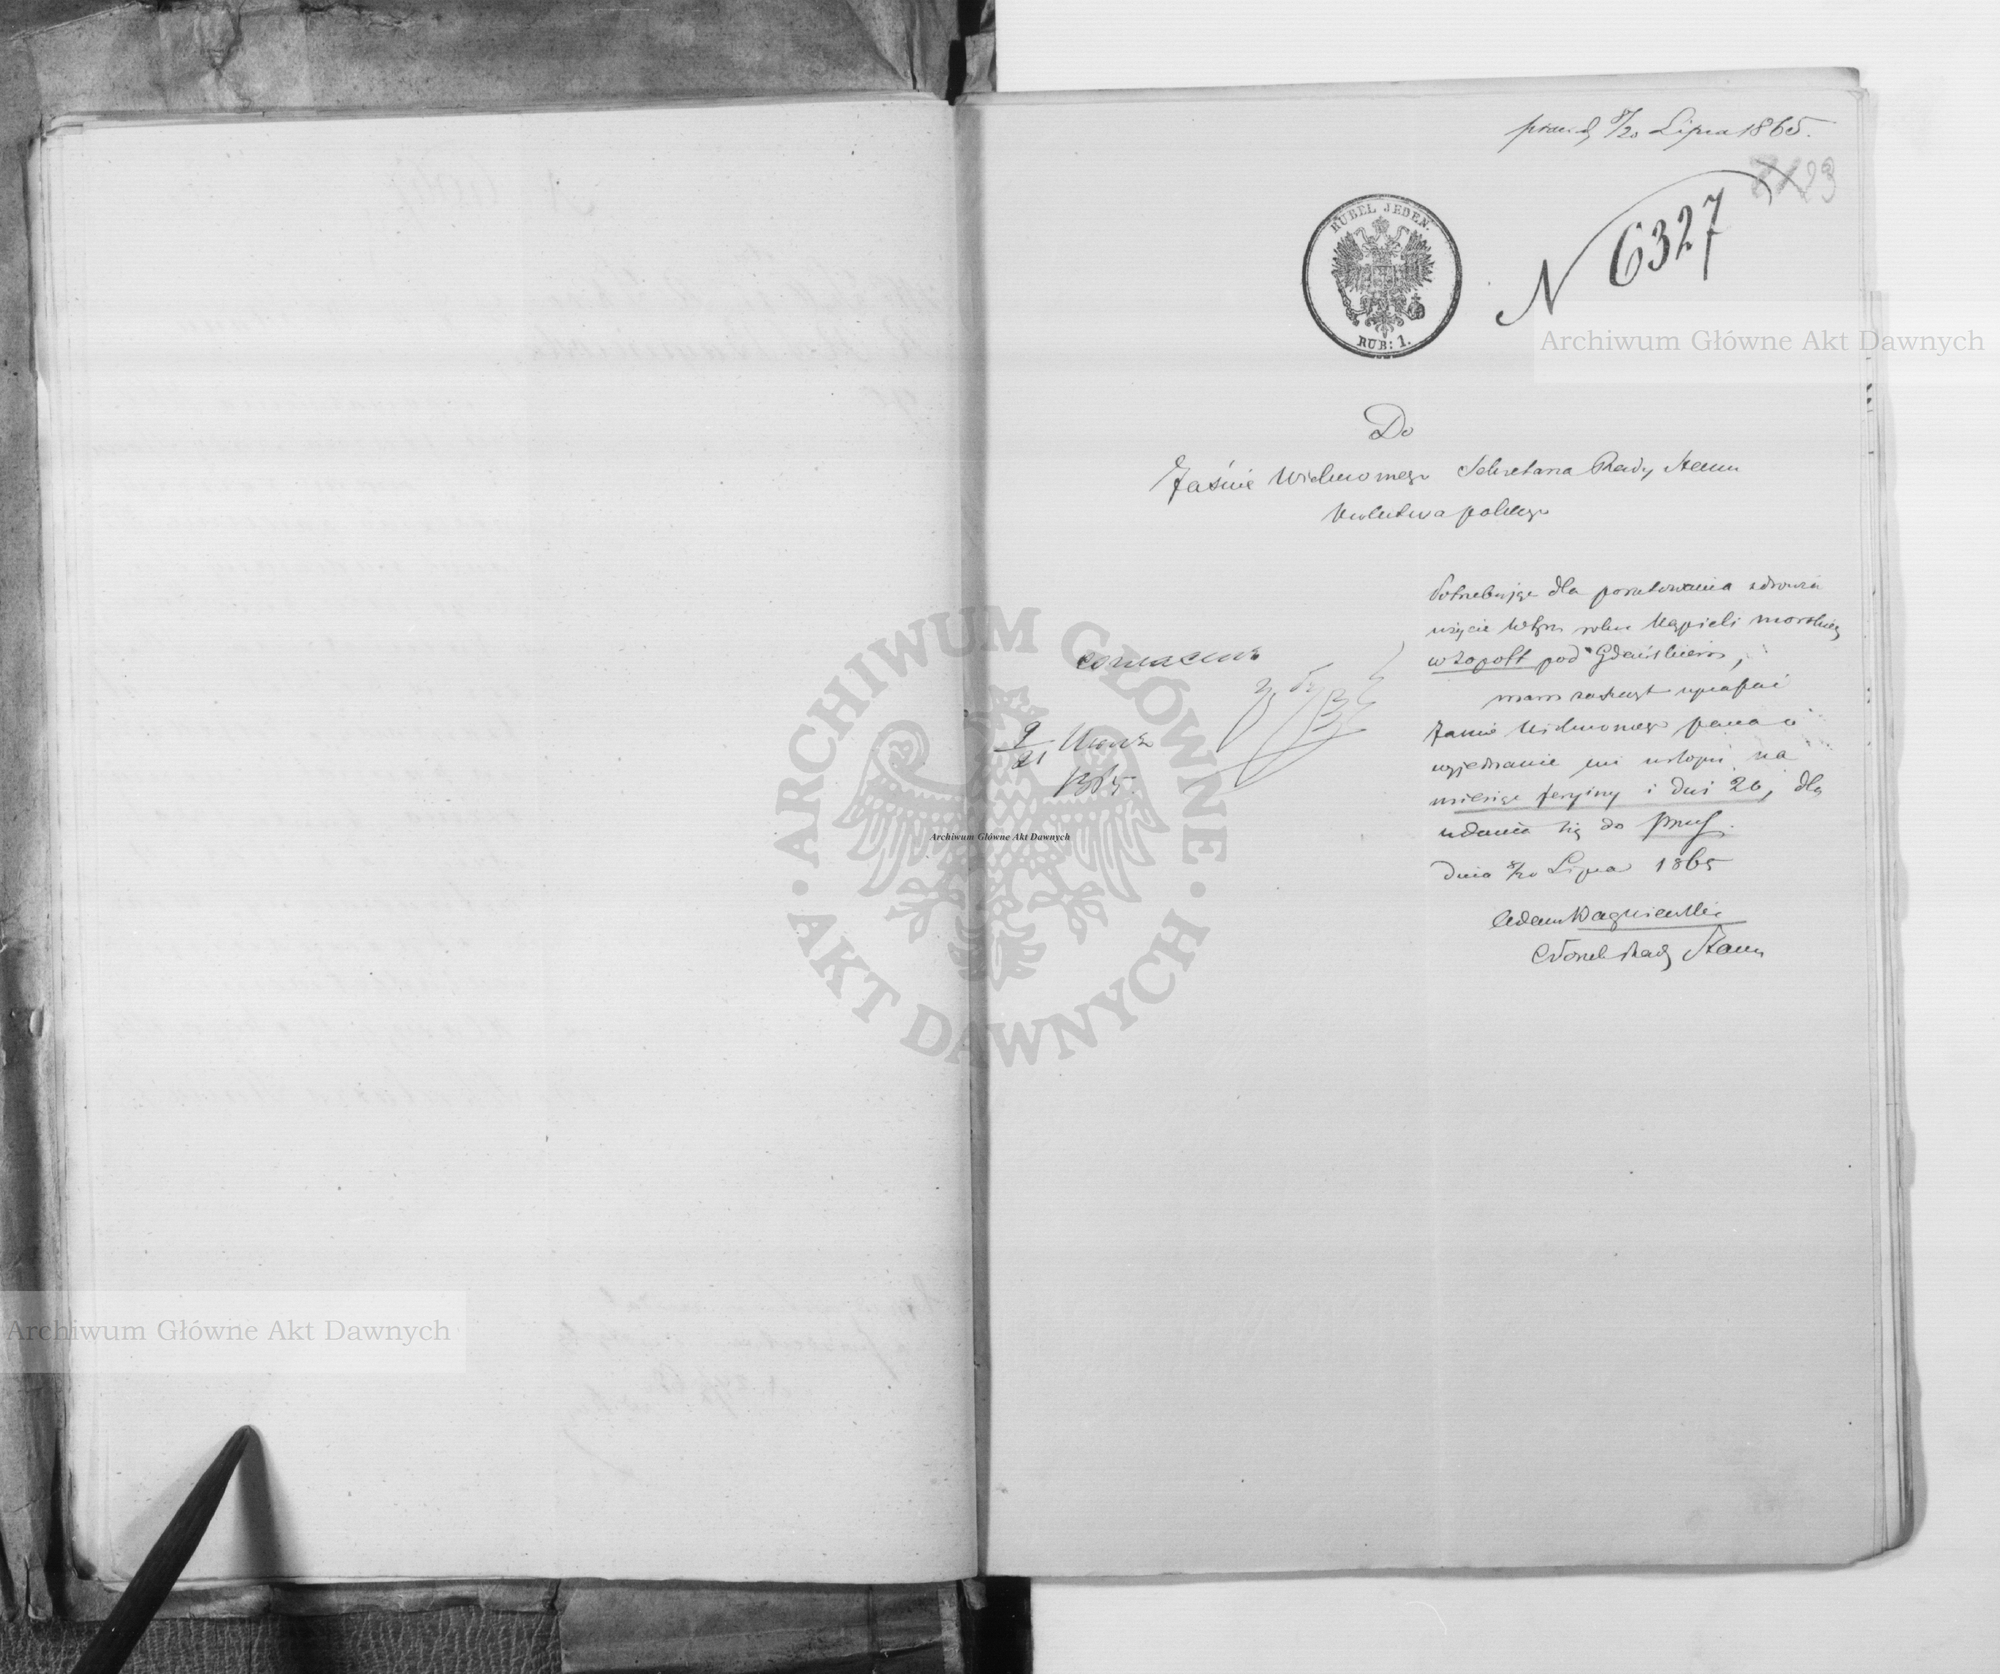 8/20 Lipca 1865.
23
RUBEL JEDEN.
RUB: 1.
N 6327
Do
Jaśnie Wielmożnego Sekretarza Rady Stanu
Królestwa polskiego
Potrzebując dla poratowania zdrowia
użycie w tym roku kąpieli morskiej
w Zopott pod Gdańskiem,
mam zaszczyt upraszać
Jaśnie Wielmożnego pana o
wyjednanie mi urlopu na
miesiąc feryiny i dni 20, dla
udania się do Prus.
dnia 8/20 Lipca 1865
Adam
Członek Rady Stanu
согласенъ
9/21 Июля
1865.
Archiwum Główne Akt Dawnych
Archiwum Główne Akt Dawnych
Archiwum Główne Akt Dawnych
ARCHIWUM GŁÓWNE • AKT DAWNYCH •